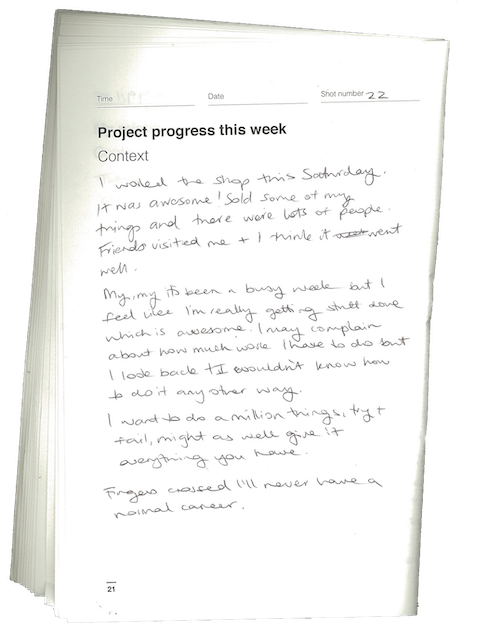 Time Date Shot number 22
Project progress this week
Context
I worked the shop this Saturday.
It was awesome! Sold some of my
things and there were lots of people.
Friends visited me + I think it went
well.
My, my it's been a busy week but I
feel like I'm really getting stuff done
which is awesome. I may complain
about how much work I have to do but
I look back + I wouldn't know how
to do it any other way.
I want to do a million things, try +
fail, might as well give it
everything you have.
Fingers crossed I'll never have a
normal career.
21